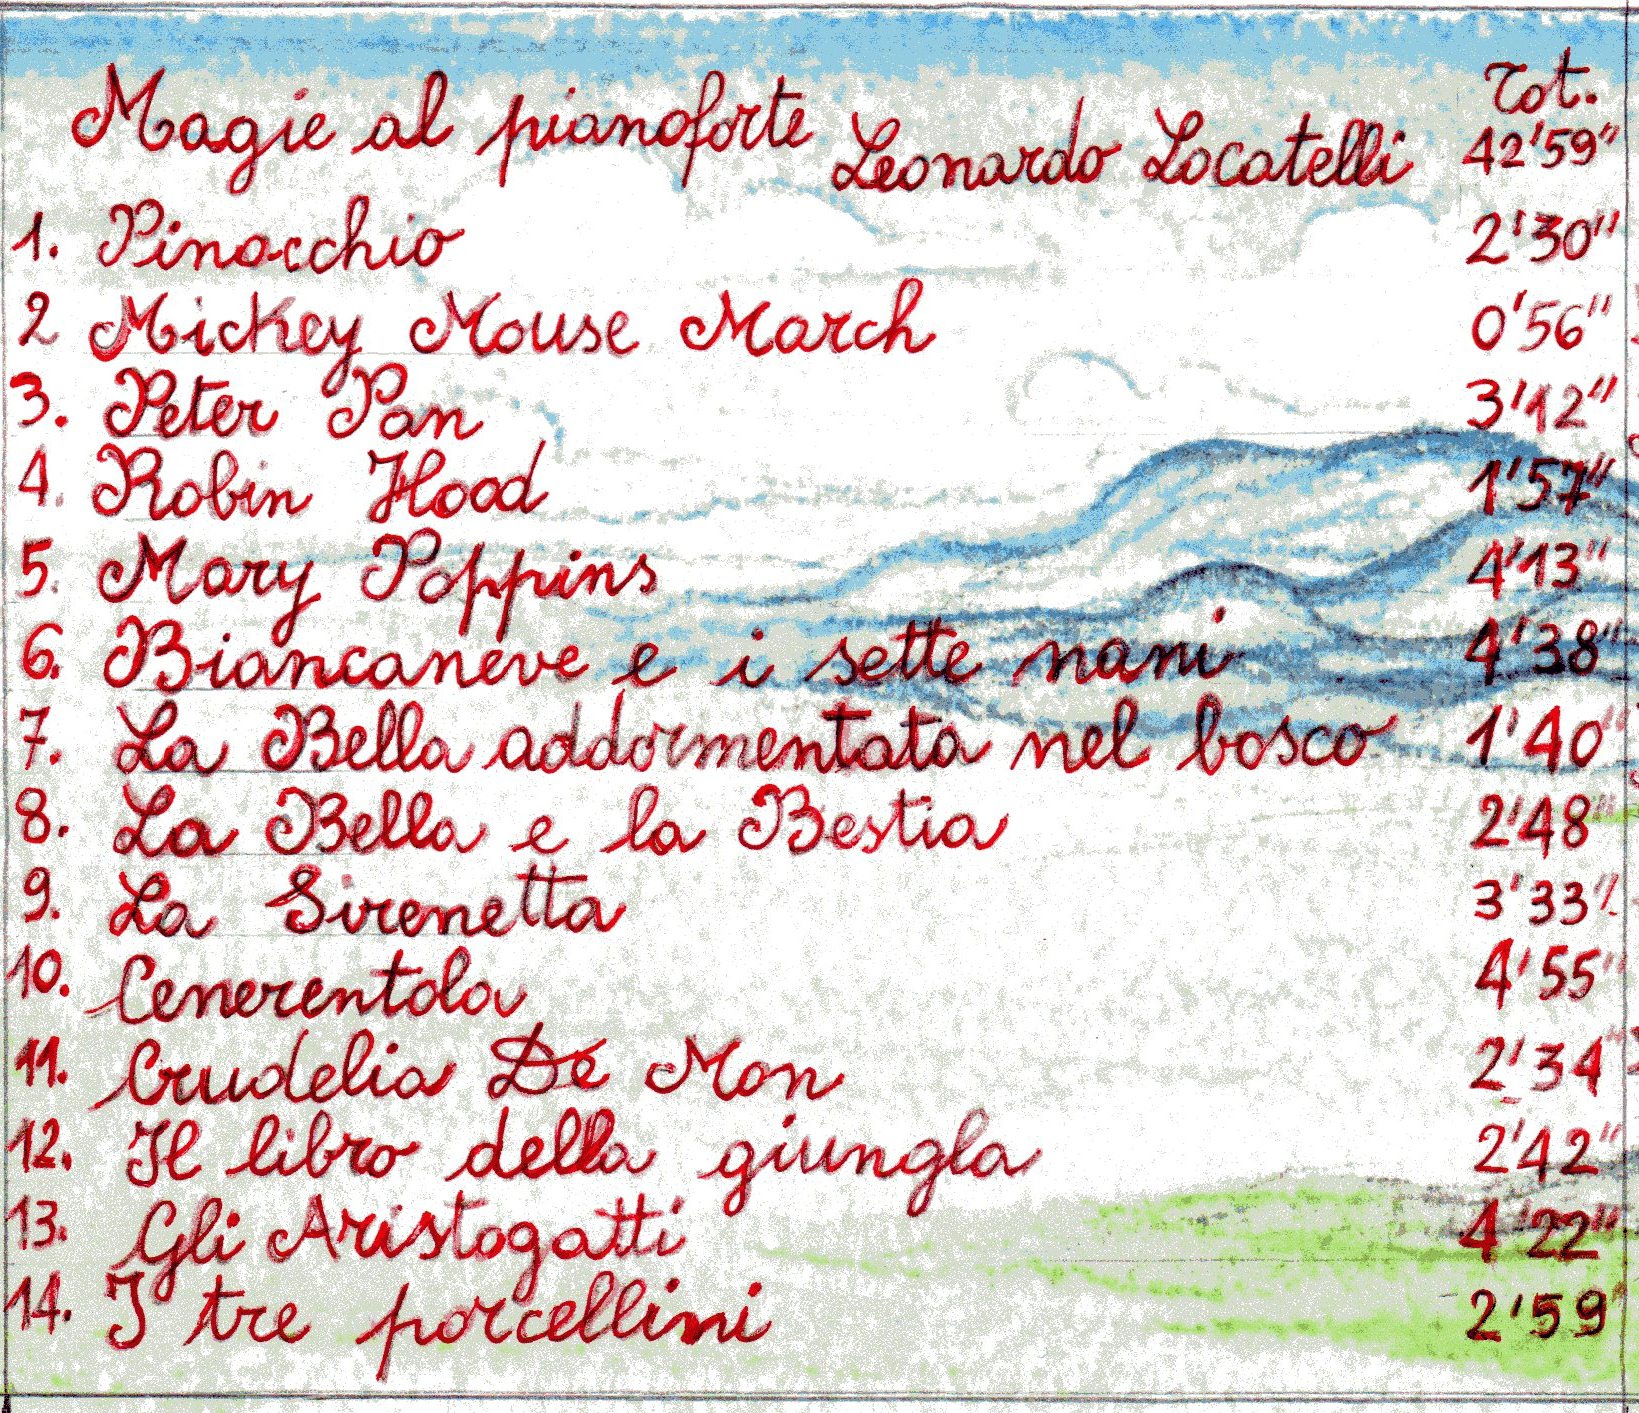 Magie al pianoforte Leonardo Locatelli Tot. 42'59"
1. Pinocchio 2'30"
2 Mickey Mouse March 0'56"
3. Peter Pan 3'12"
4. Robin Hood 1'57"
5. Mary Poppins 4'13"
6. Biancaneve e i sette nani 4'38"
7. La Bella addormentata nel bosco 1'40"
8. La Bella e la Bestia 2'48"
9. La Sirenetta 3'33"
10. Cenerentola 4'55"
11. Crudelia De Mon 2'34"
12. Il libro della giungla 2'42"
13. Gli Aristogatti 4'22"
14. I tre porcellini 2'59